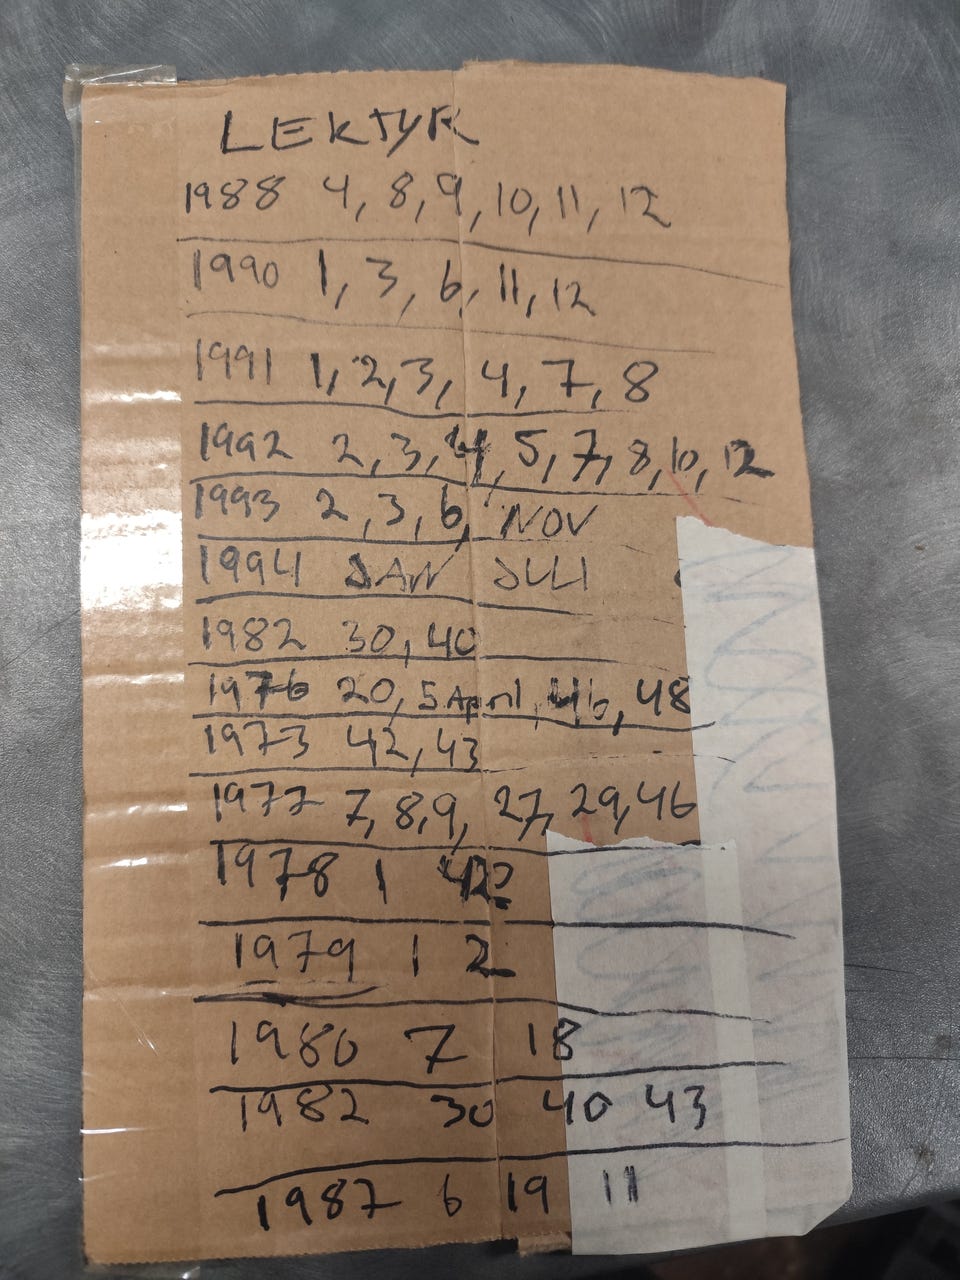 LEKTYR
1988 4, 8, 9, 10, 11, 12
1990 1, 3, 6, 11, 12
1991 1, 2, 3, 4, 7, 8
1992 2, 3, 4, 5, 7, 8, 10, 12
1993 2, 3, 6, NOV
1994 JAN JULI
1982 30, 40
1976 20, 5 April, 46, 48
1973 42, 43
1977 7, 8, 9, 27, 29, 46
1978 1
1979 1 2
1980 7 18
1982 30 40 43
1987 6 19 11